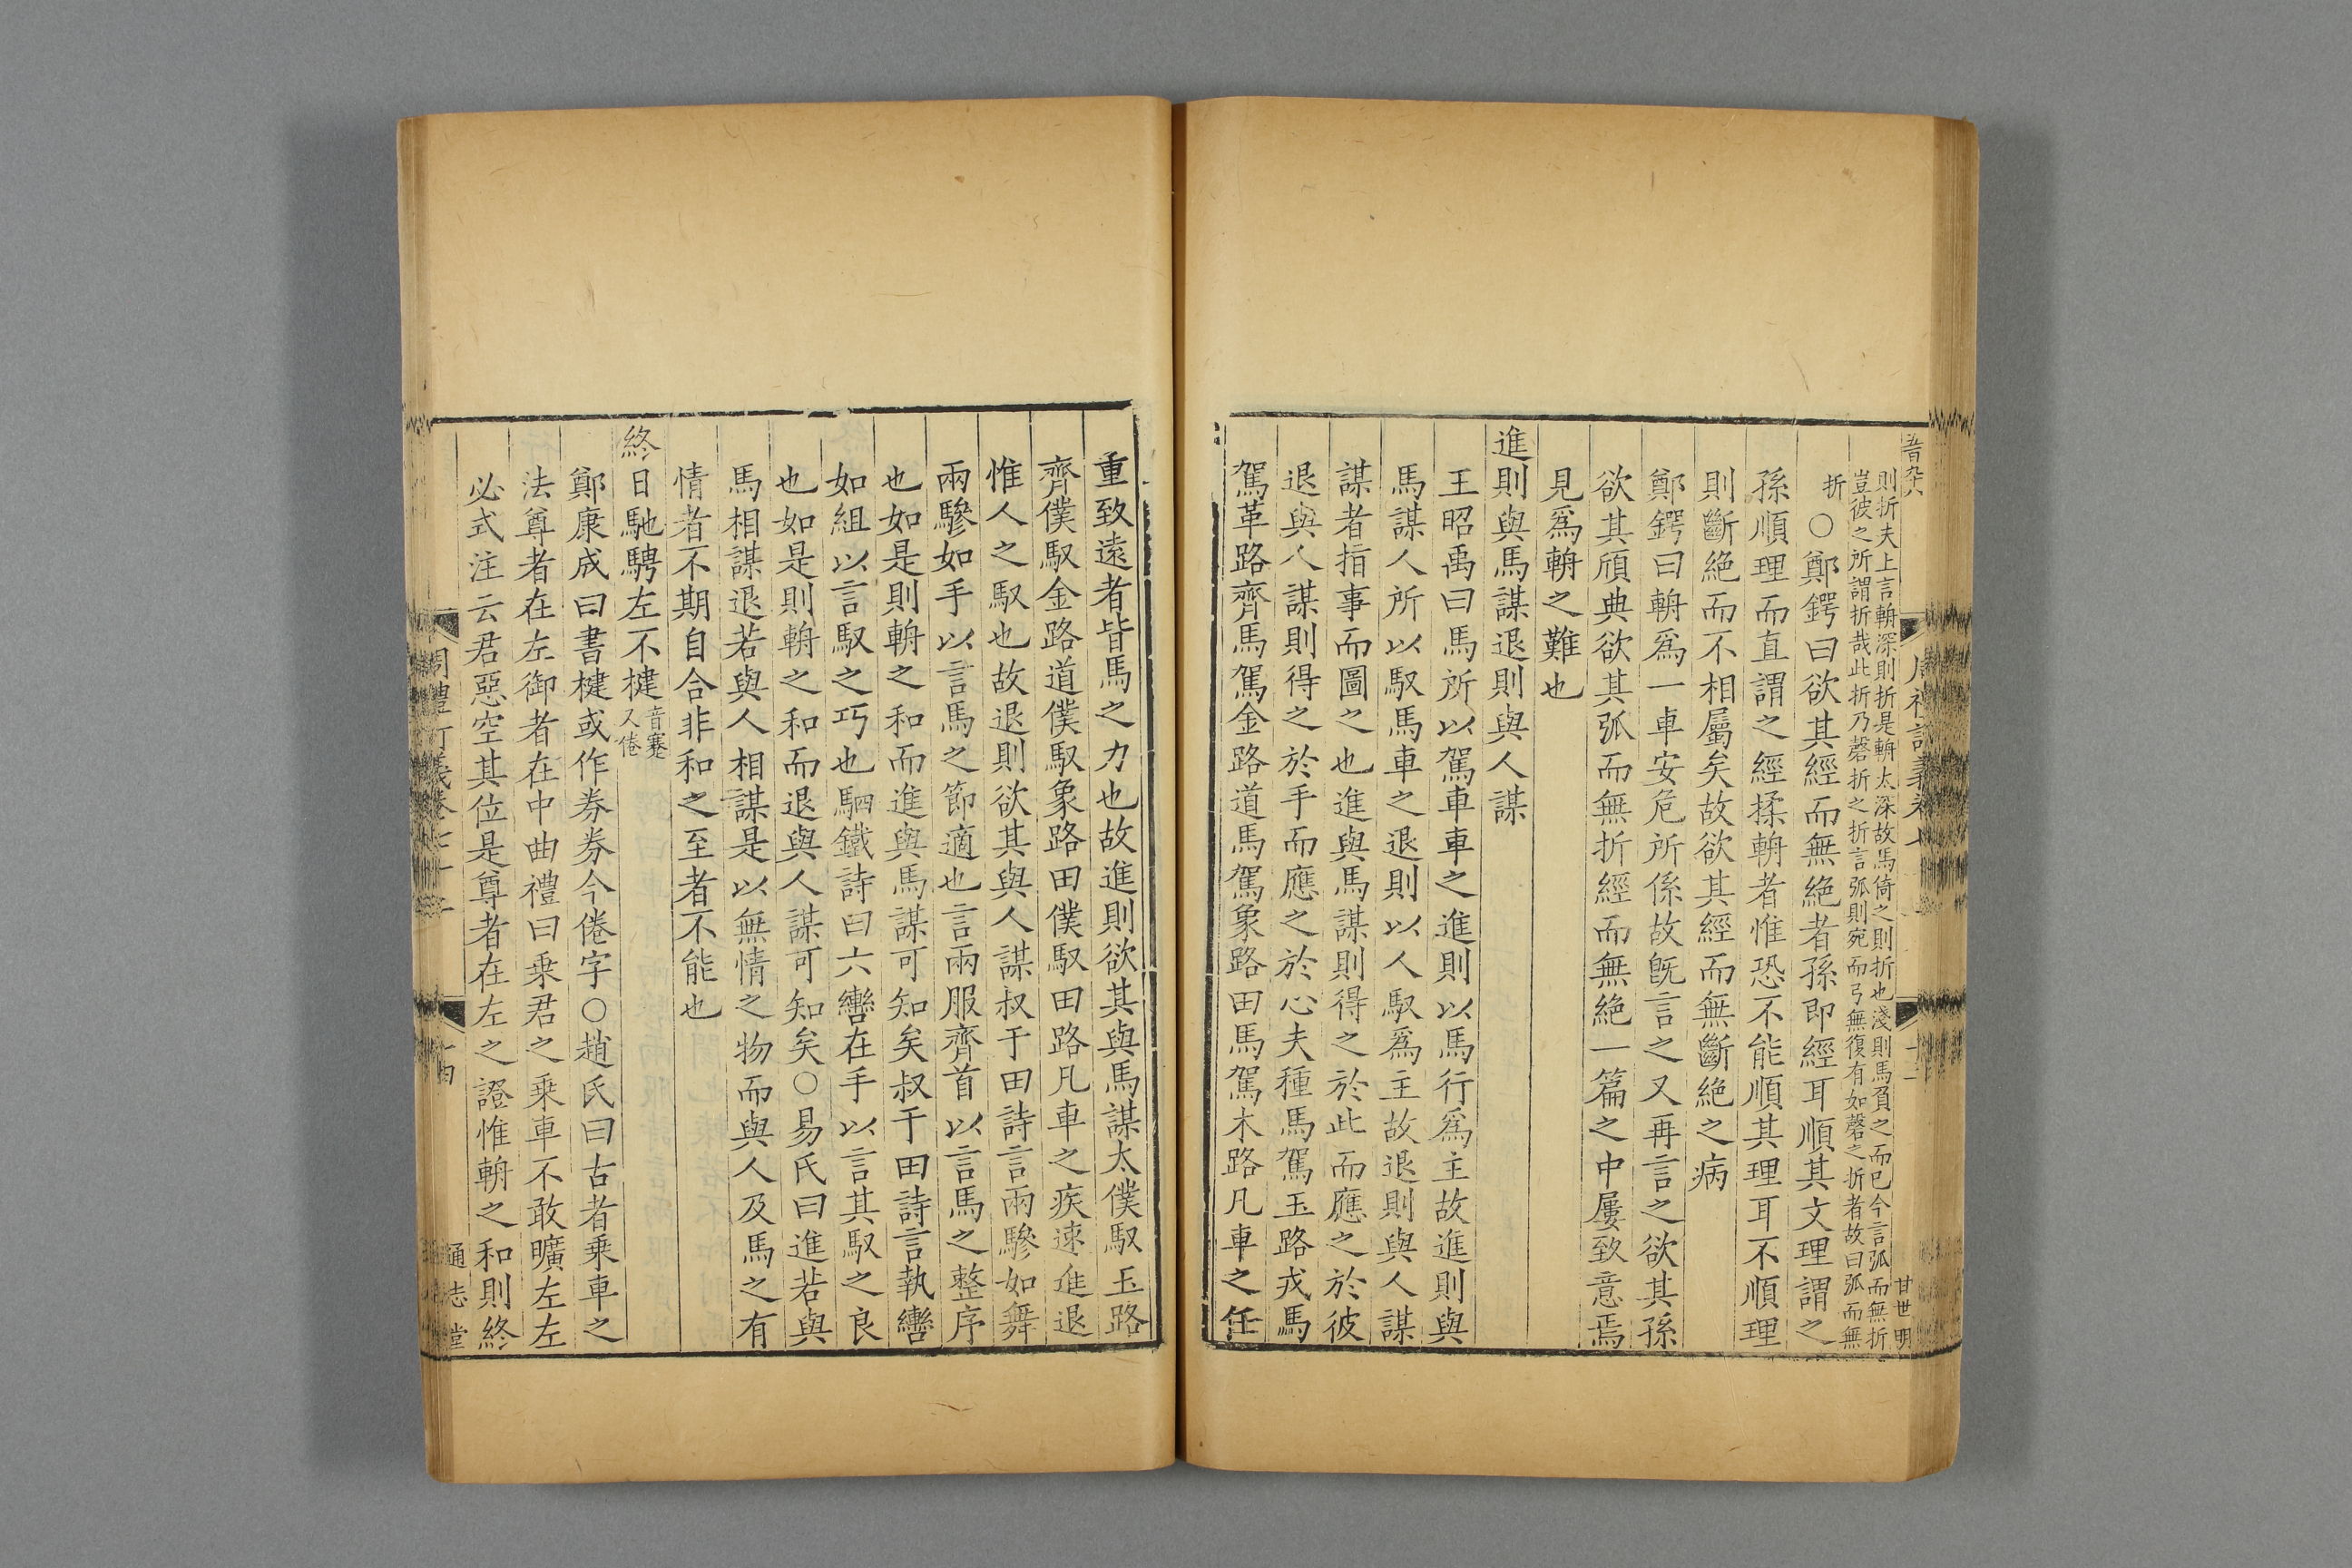 則折夫上言輈深則折是輈太深故馬倚之則折也淺則馬負之而已今言弧而無折
豈彼之所謂折哉此折乃磬折之折言弧則宛而弓無復有如磬之折者故曰弧而無
折
○鄭鍔曰欲其經而無絕者孫即經耳順其文理謂之
孫順理而直謂之經揉輈者惟恐不能順其理耳不順理
則斷絕而不相屬矣故欲其經而無斷絕之病
鄭鍔曰輈爲一車安危所係故旣言之又再言之欲其孫
欲其頎典欲其弧而無折經而無絕一篇之中屢致意焉
見爲輈之難也
進則與馬謀退則與人謀
王昭禹曰馬所以駕車車之進則以馬行爲主故進則與
馬謀人所以馭馬車之退則以人馭爲主故退則與人謀
謀者指事而圖之也進與馬謀則得之於此而應之於彼
退與人謀則得之於手而應之於心夫種馬駕玉路戎馬
駕革路齊馬駕金路道馬駕象路田馬駕木路凡車之任
甘世明
重致遠者皆馬之力也故進則欲其與馬謀太僕馭玉路
齊僕馭金路道僕馭象路田僕馭田路凡車之疾速進退
惟人之馭也故退則欲其與人謀叔于田詩言兩驂如舞
兩驂如手以言馬之節適也言兩服齊首以言馬之整序
也如是則輈之和而進與馬謀可知矣叔于田詩言執轡
如組以言馭之巧也駟鐵詩曰六轡在手以言其馭之良
也如是則輈之和而退與人謀可知矣○易氏曰進若與
馬相謀退若與人相謀是以無情之物而與人及馬之有
情者不期自合非和之至者不能也
終日馳騁左不楗音蹇又倦
鄭康成曰書楗或作券券今倦字○趙氏曰古者乘車之
法尊者在左御者在中曲禮曰乘君之乘車不敢曠左左
必式注云君惡空其位是尊者在左之證惟輈之和則終
周禮訂義卷七十二
十四
通志堂